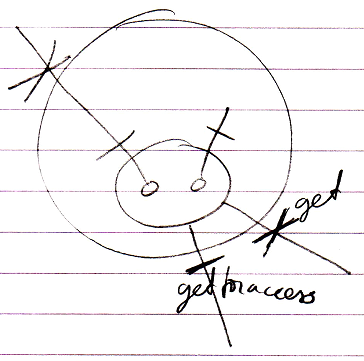 get
get to access